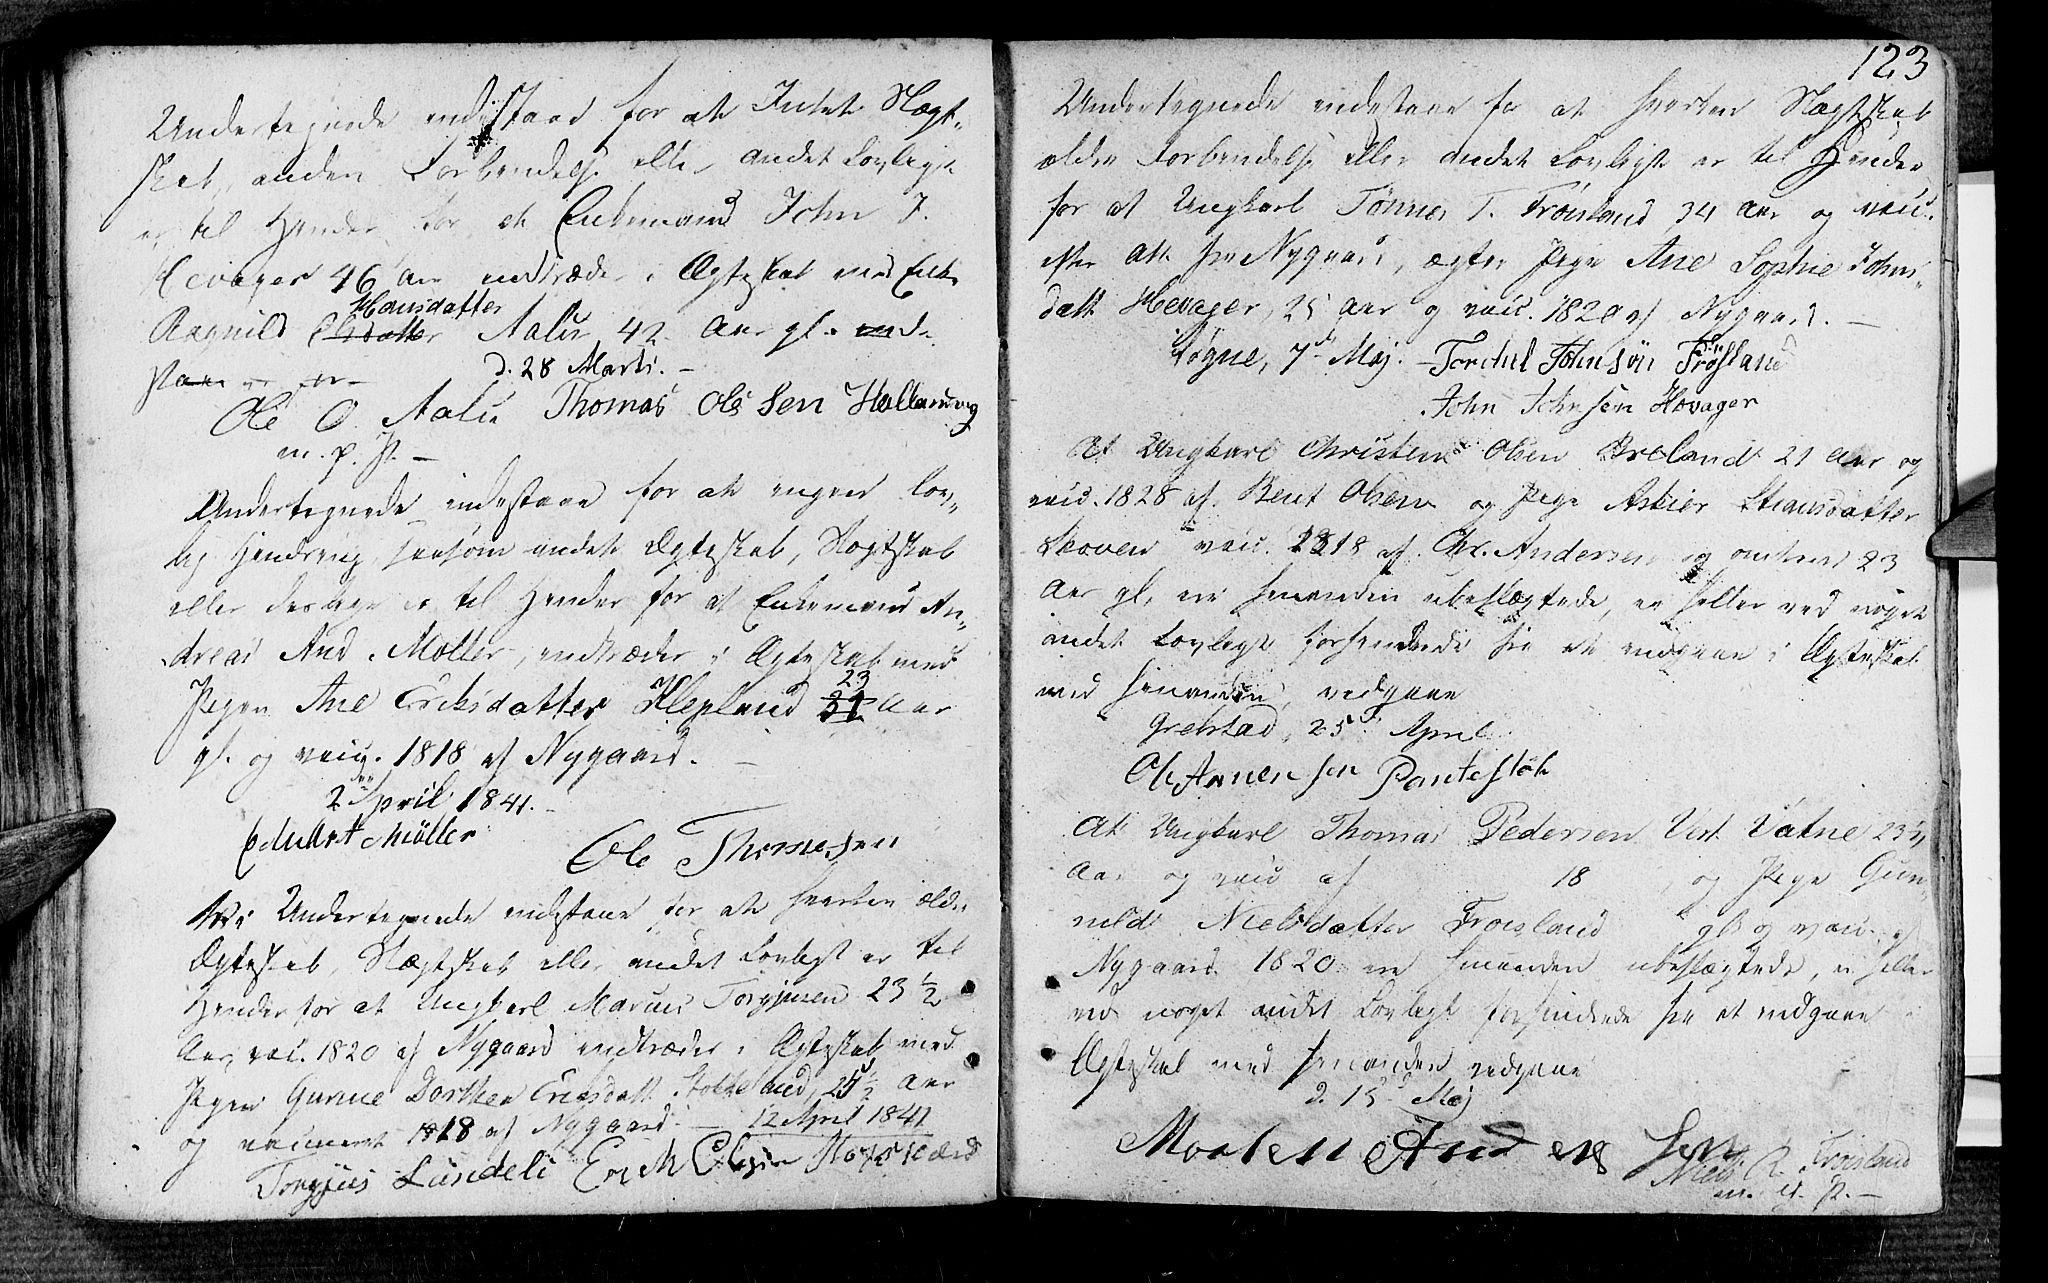 Undertegnede indestaae for at Intet Slægt-
skab, anden Forbindelse eller andet Lovligt
er til Hinder for at Enkemand John J.
Hevager 46 Aar indtræder i Ægteskab med Enke
Hansdatter
Ragnild Aalie 42 Aar gl. ind-
staae
d. 28 Marts. —
Ole O. Aalie Thomas Olesen
m. p. P. —
Undertegnede indestaae for at ingen lov-
lig Hindring saasom andet Ægteskab, Slægtskab
eller deslige er til Hinder for at Enkemand An-
dreas And. Møller, indtræder i Ægteskab med
23
Pigen Ane Eriksdatter Klepland 31 Aar
gl. og vacc. 1818 af Nygaard. —
2den April 1841. —
Eduart Møller
Ole Thomesen
Undertegnede indestaae for at hverken ældre
Ægteskab, Slægtskab eller andet Lovligt er til
Hinder for at Ungkarl Marcus Torgjusen 23 1/2
Aar, vac. 1820 af Nygaard indtræder i Ægteskab med
Pigen Gunne Dorthea Ericsdatt. Stokkeland, 25 1/2 Aar
og vaccineret 1818 af Nygaard. — 12 April 1841
Torgjus Lundeli Erik Olsen
123
Undertegnede indestaae for at hverken Slægtskab
ældre Forbindelse eller andet Lovligt er til Hinder
for at Ungkarl Tønnes T. Frøisland, 34 Aar og vacc.
efter Att. fra Nygaard, ægter Pige Ane Sophie Johns-
datt. Hevager, 25 Aar og vacc. 1820 af Nygaard. —
Søgne, 7d Maj. — Torchel Johnsøn Frøsland
John Johnsen Hovager
At Ungkarl Christen Olsen Breland 21 Aar og
vacc. 1828 af Bent Olsen og Pige Astier Stiansdatter
Skoven vacc. 1818 af Chr. Andersen og omtrent 23
Aar gl. ere hinanden ubeslægtede, ei heller ved noget
andet Lovligt forhindrede fra at indgaae i Ægteskab
med hinanden, vedgaae
Grebstad, 25d April
Ole Annensen Pantestøl
At Ungkarl Thomas Pedersen Vest Vatne 23 1/2
Aar og vacc af 18 , og Pige Gun-
nild Nielsdatter Frøisland gl. og vacc. af
Nygaard 1820 ere hinanden ubeslægtede, ei heller
ved noget andet Lovligt forhindrede fra at indgaae i
Ægteskab med hinanden vedgaae
d. 15d Maj
Morten Andersen
Niels Frøisland
m. p. P. —